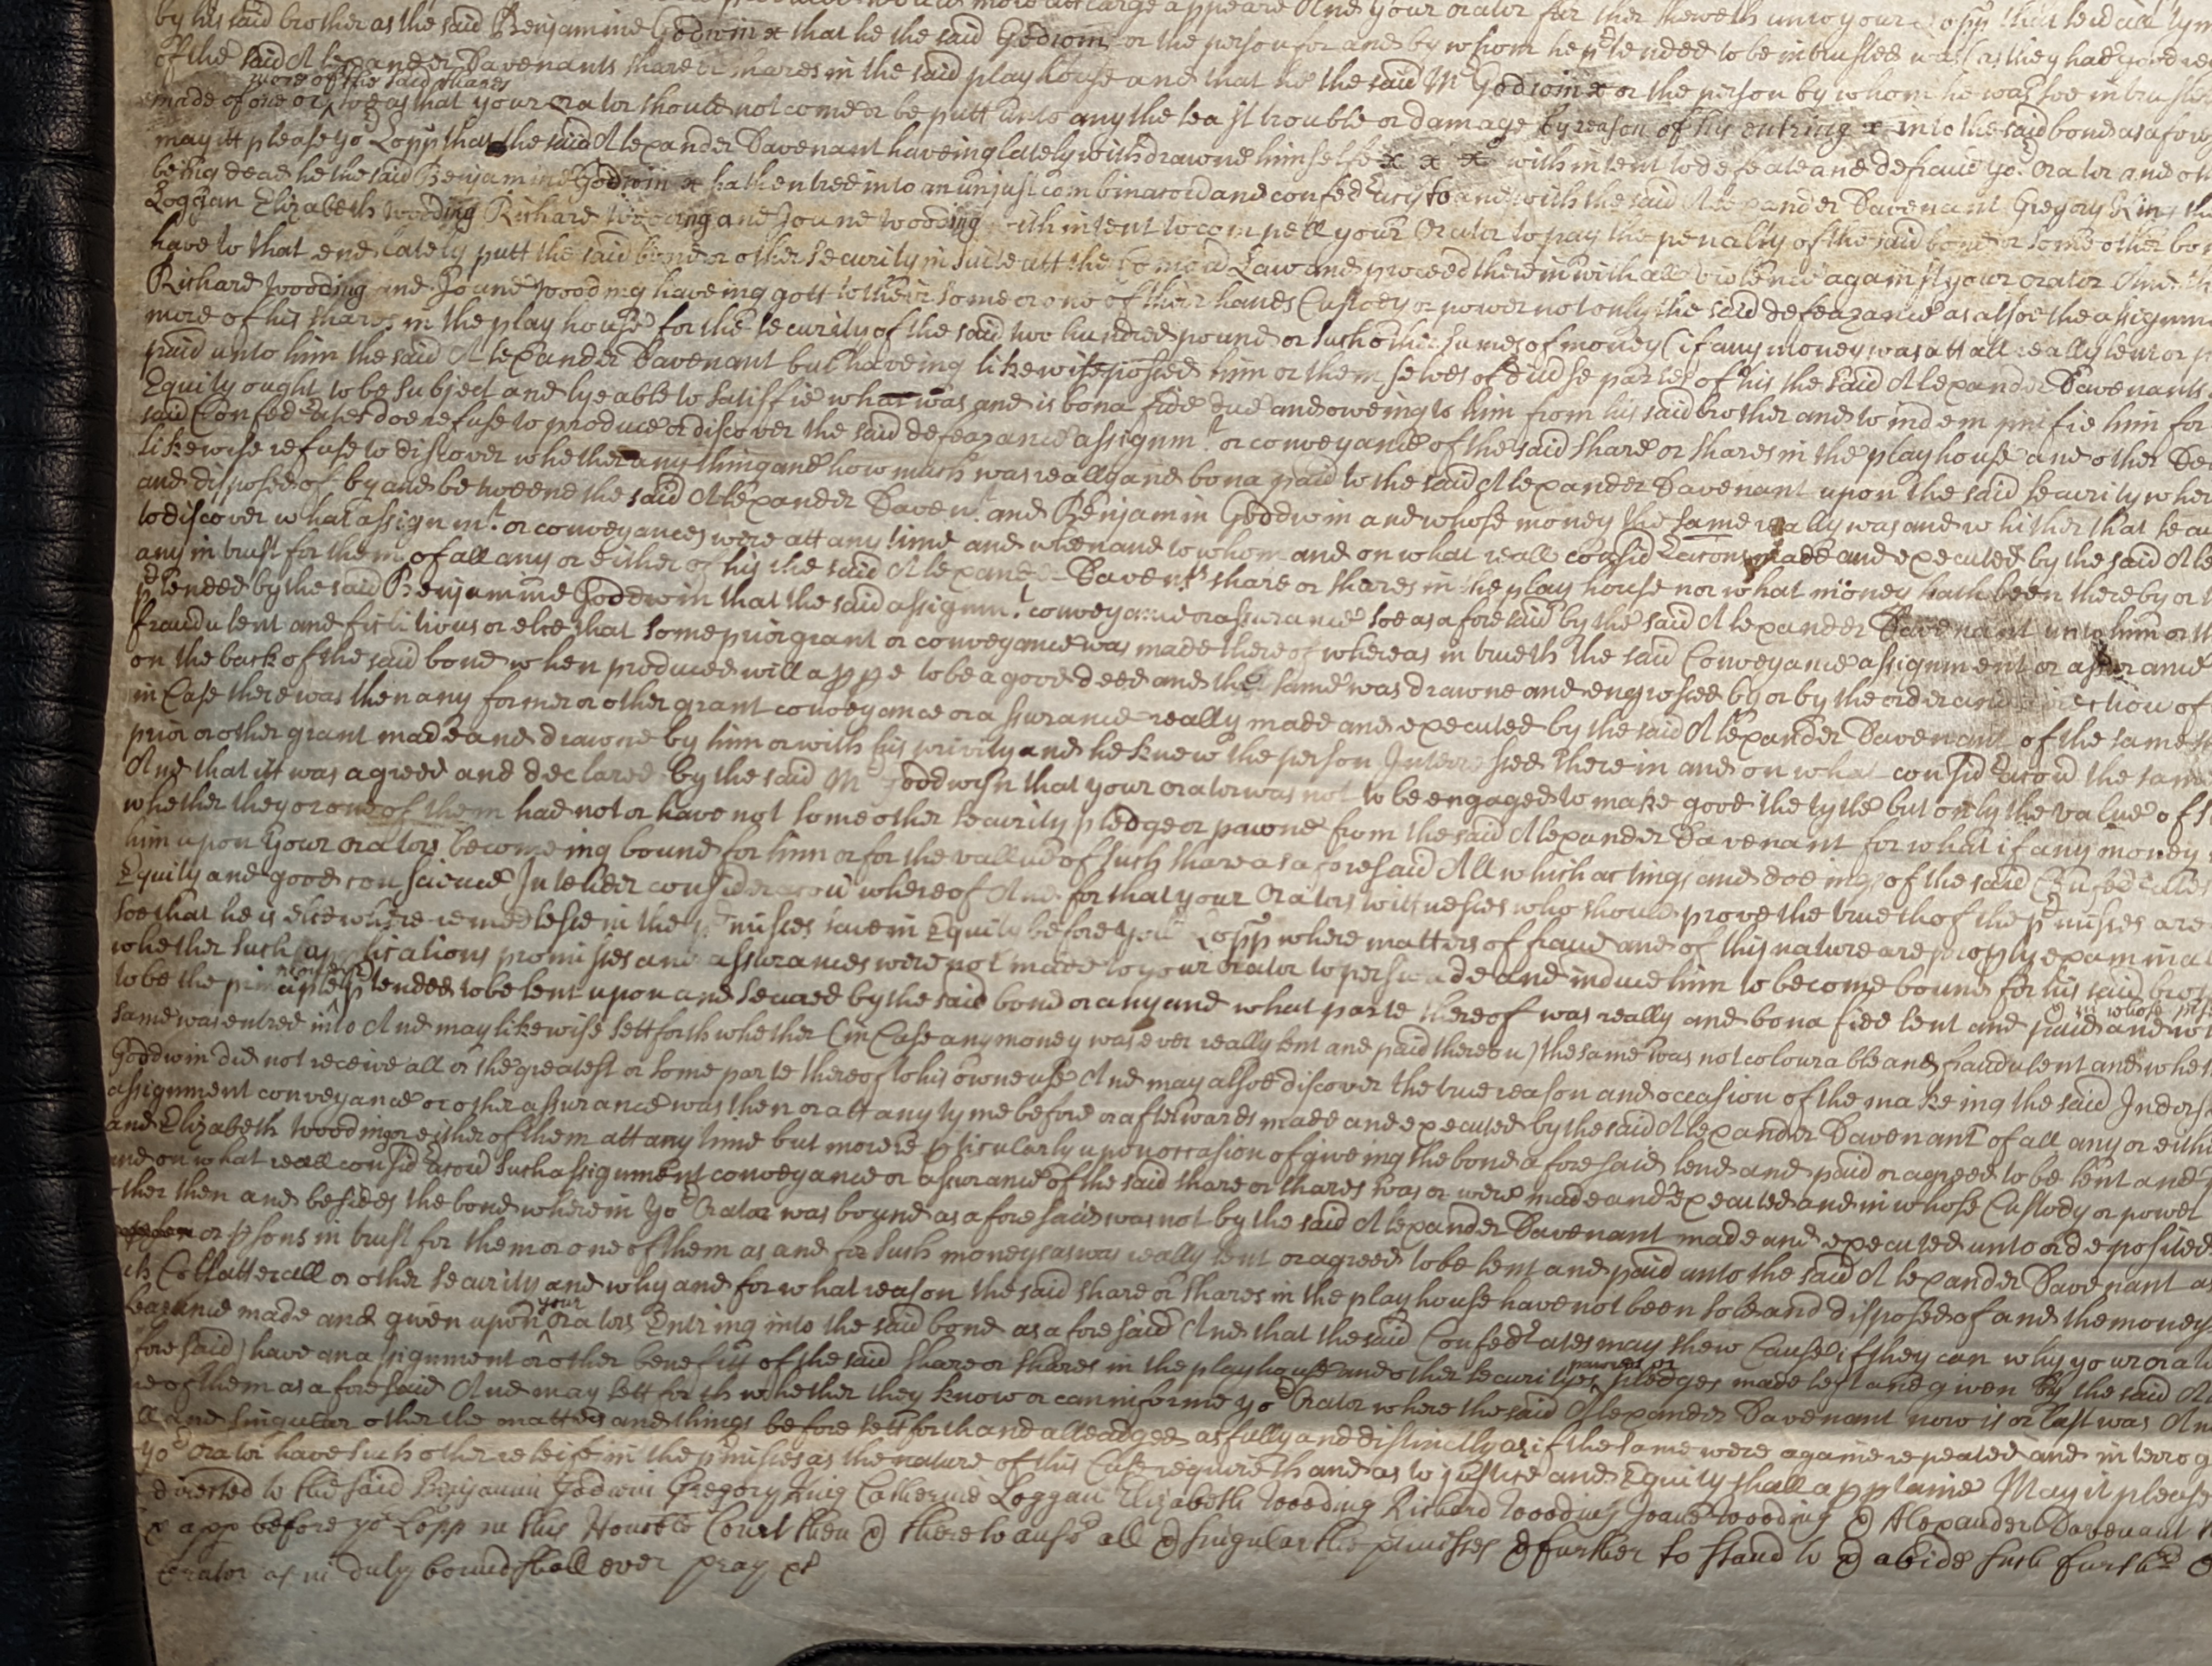 by his said brother as the said Benjamine Godwin x that he the said Godwin or the person for and by whom he p'tended to be intrusted was (as they had good rea
of the said Alexander Davenants share or shares in the said play house and that he the said Mr Godwin x or the person by whom he was soe intruste
more of the said shares
made of one or two soe as that your Orator should not come or be putt unto any the least trouble or damage by reason of his entring x into the said bond as afore
may itt please yor Lopp that the said Alexander Davenant haveing lately withdrawne himselfe x x x with intent to defeate and defraud yor Orator and oth
being dead he the said Benjamine Godwin x hath entred into an unjust combinacon and confed'acy to and with the said Alexander Davenant Gregory King
Loggan Elizabeth Wooding Richard Wooding and Joane Wooding with intent to compell your Orator to pay the penalty of the said bond or some other
have to that end lately putt the said bond or other security in suite att the Comon Law and proceed therein with all violence against your Orator And
Richard Wooding and Joane Wooding haveing gott to their some or one of their hands Custody or power not only the said defeazance as alsoe the assignm
more of his shares in the play house for the security of the said two hundred pound or such other sumes of money (if any money was att all really lent or
paid unto him the said Alexander Davenant but haveing likewise possed him or themselves of div'se partes of his the said Alexander Davenants
Equity ought to be subject and lyeable to satisfie what was and is bona fide due and oweing to him from his said brother and to indempnifie him for
said Confed'ates doe refuse to produce or discover the said defeazance assignmt or conveyance of the said share or shares in the play house and other
likewise refuse to discover whether any thing and how much was really and bona paid to the said Alexander Davenant upon the said security wher
and disposed of by and betweene the said Alexander Davent and Benjamin Goddwin and whose money the same really was and whither that
to discover what assignmt or conveyances were att any time and when and to whom and on what reall consid'acons made and executed by the said Ale
any in trust for them of all any or either of his the said Alexander Davents share or shares in the play house nor what money hath been thereby or
p'tended by the said Benjamine Goddwin that the said assignmt conveyance or assurance soe as aforesaid by the said Alexander Davenant unto him or th
fraudulent and fictitious or else that some prior grant or conveyance was made thereof whereas in trueth the said Conveyance assignment or assurance
on the back of the said bond when produced will appe to be a good deed and the same was drawne and engrossed by or by the order and direction of
in Case there was then any former or other grant conveyance or assurance really made and executed by the said Alexander Davenant of the same
prior or other grant made and drawne by him or with his privity and he knew the person Interessed therein and on what consid'acon the same
And that itt was agreed and declared by the said Mr Goddwin that your orator was not to be engaged to make good the tytle but only the value of
whether they or one of them had not or have not some other security pledge or pawne from the said Alexander Davenant for what if any money
him upon your orators becomeing bound for him or for the vallue of such share as aforesaid All which actings and doeings of the said Confed'ates
Equity and good conscience In tender consideracon whereof And for that your Orators wittnesses who should prove the trueth of the p'misses are
soe that he is elsewhere remedlesse in the p'misses save in Equity before yor Lopp where matters of fraud and of this nature are prop'ly examinab
whether such applications promisses and assurances were not made to your orator to perswade and induce him to become bound for his said brot
to be the principle p'tended to be lent upon and secured by the said bond or any and what parte thereof was really and bona fide lent and paid and
same was entred into And may likewise sett forth whether (in Case any money was ever really lent and paid thereon) the same was not colourable and fraudulent and whe
Goodwin did not receive all or the greatest or some parte thereof to his owne use And may alsoe discover the true reason and occasion of the makeing the said Indors
assignment conveyance or other assurance was then or att any tyme before or afterwards made and executed by the said Alexander Davenant of all any or eith
and Elizabeth Wooding or either of them att any time but more p'ticularly upon occasion of giveing the bond aforesaid lend and paid or agreed to be lent and
and on what reall consid'acon such assignment conveyance or assurance of the said share or shares was or were made and executed and in whose Custody or power
other then and besides the bond wherein yor Orator was bound as aforesaid was not by the said Alexander Davenant made and executed unto or deposited
or p'sons in trust for them or one of them as and for such moneys as was really lent or agreed to be lent and paid unto the said Alexander Davenant
Collatterall or other security and why and for what reason the said share or shares in the play house have not been sold and disposed of and the money
your
made and given upon orators Entring into the said bond as aforesaid And that the said Confed'ates may shew Cause if they can why your orat
foresaid) have an assignment or other benefitt of the said share or shares in the play house and other securityes pledges made left and given by the said
pawnes or
of them as aforesaid And may sett forth whether they know or can informe yor Orator where the said Alexander Davenant now is or last was
and singular other the matters and things before sett forth and alleadged as fully and distinctly as if the same were againe repeated and interrog
yor orator have such other releife in the p'misses as the nature of this Case requireth and as to justice and Equity shall appertaine May it please
directed to the said Benjamin Godwin Gregory King Catherine Loggan Elizabeth Wooding Richard Wooding Joane Wooding & Alexander Davenant
app before yor Lopp in this Honoble Court then & there to answ' all & singular the p'misses & further to stand to & abide such further
Orator as in duty bound shall ever pray &c